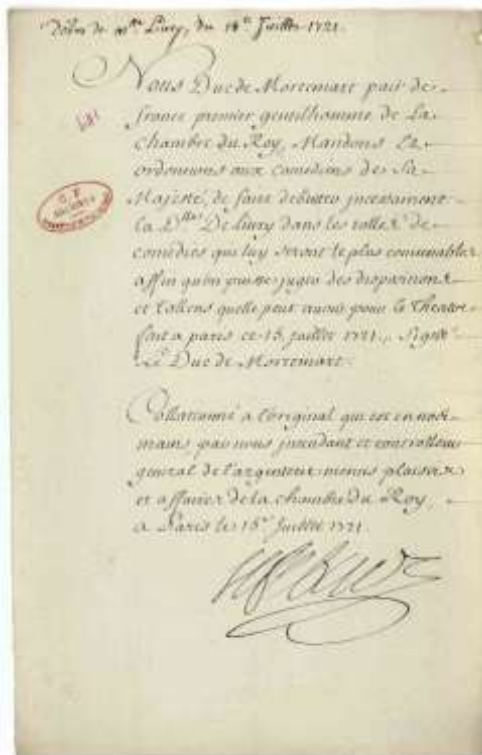 Début de Mlle Livry, du 15e Juillet 1721.
Nous Duc de Mortemart pair de
france premier gentilhomme de La
chambre du Roy, Mandons Et
ordonnons aux comediens de Sa
Majesté, de faire debutter incessament
la Dlle De Livry dans les rolles de
comedies qui luy seront le plus convenables
affin qu'on puisse juger des dispositions
et tallens quelle peut avoir pour le Theatre
fait a paris ce 15. juillet 1721. Signé
Le Duc de Mortemart.
Collationné a l'original qui est en nos
mains par nous intendant et controlleur
general de l'argenterie menus plaisirs
et affaires de la chambre du Roy,
a Paris le 15e Juillet 1721.